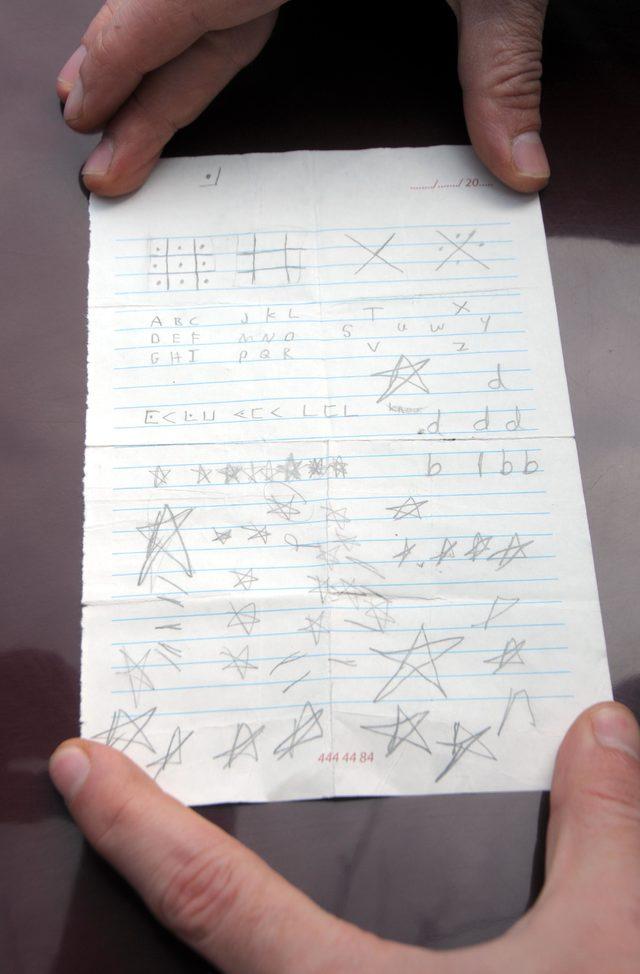 ......../......../ 20.....
A B C J K L T X
D E F M N O S U W Y
G H I P Q R V Z
d
d d d
b l b b
444 44 84